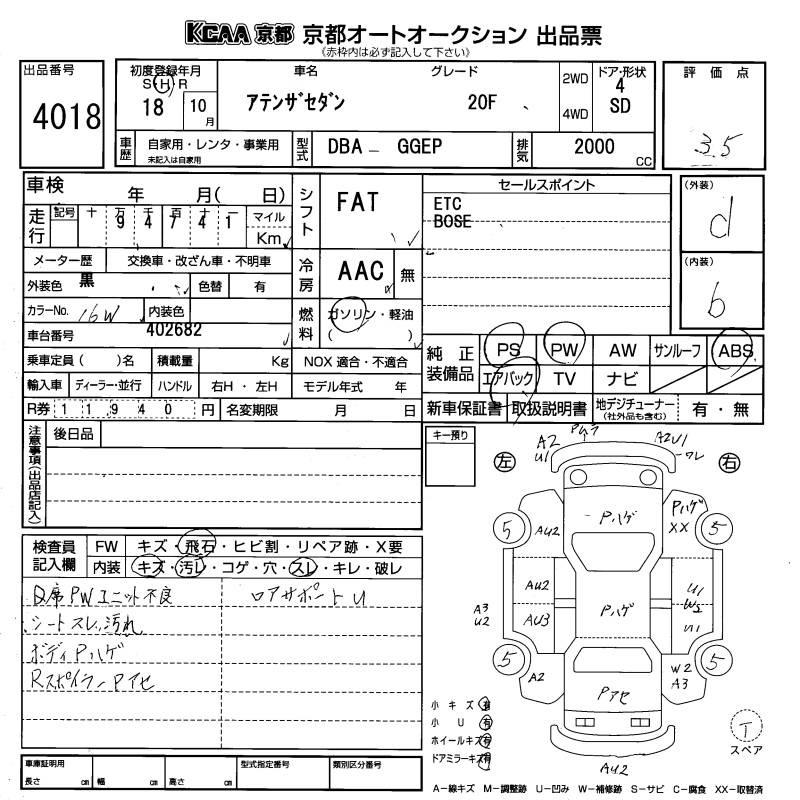 KCAA 京都 京都オートオークション 出品票
(赤枠内は必ず記入して下さい)
出品番号
4018
初度登録年月
S H R
18 10 月
車名
アテンザセダン
グレード
20F
2WD
4WD
ドア・形状
4
SD
評価点
3.5
車歴
自家用・レンタ・事業用
未記入は自家用
型式
DBA－GGEP
排気
2000 CC
車検 年 月( 日)
走行
記号 十 万 千 百 十 一
9 4 7 4 1
マイル
Km
メーター歴 交換車・改ざん車・不明車
外装色 黒 色替 有
カラーNo. 16W 内装色
車台番号 402682
乗車定員( )名 積載量 Kg
輸入車 ディーラー・並行 ハンドル 右H・左H
R券 11940 円 名変期限 月 日
シフト FAT
冷房 AAC 無
燃料 ガソリン・軽油
( )
NOX 適合・不適合
モデル年式 年
セールスポイント
ETC
BOSE
(外装)
d
(内装)
b
純正装備品
PS PW AW サンルーフ ABS
エアバック TV ナビ
新車保証書 取扱説明書 地デジチューナー(社外品も含む) 有・無
注意事項(出品店記入)
後日品
キー預り
検査員記入欄
FW キズ・飛石・ヒビ割・リペア跡・X要
内装 キズ・汚レ・コゲ・穴・スレ・キレ・破レ
D席PWユニット不良
ロアサポートU
シートスレ、汚れ
ボディPハゲ
RスポイラーPアセ
左
右
A2
U1
Pムラ
A2U1
ワレ
5
AU2
Pハゲ
Pハゲ
XX
5
AU2
AU3
A3
U2
Pハゲ
U1
W2
U1
5
A2
Pアセ
W2
A3
5
AU2
T
スペア
小キズ 有
小U 有
ホイールキズ 有
ドアミラーキズ 有
車庫証明用
長さ cm 幅 cm 高さ cm
型式指定番号
類別区分番号
A－線キズ M－調整跡 U－凹み W－補修跡 S－サビ C－腐食 XX－取替済